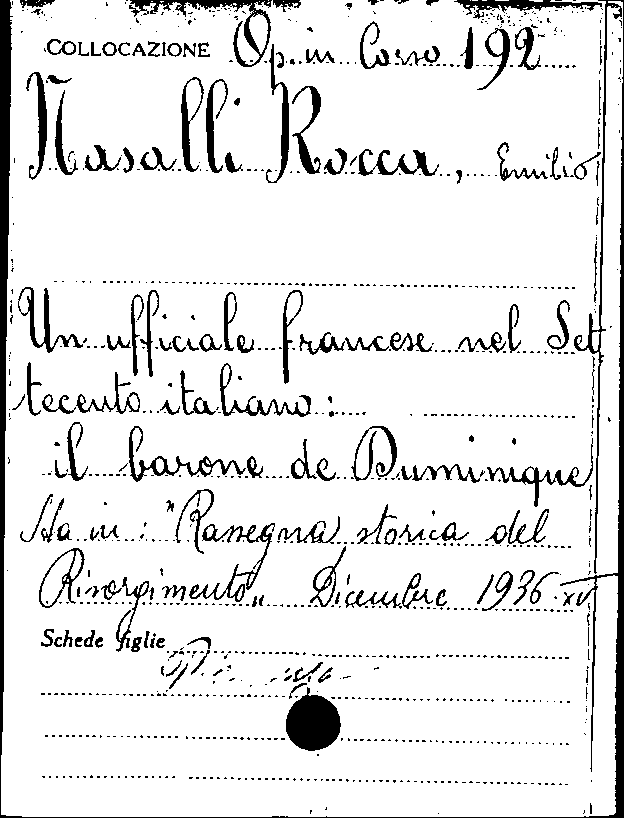 COLLOCAZIONE Op. in Corso 192
Nasalli Rocca, Emilio
Un ufficiale francese nel Set
tecento italiano:
il barone de Duminique
Sta in: "Rassegna storica del
Risorgimento„ Dicembre 1936-XV
Schede figlie